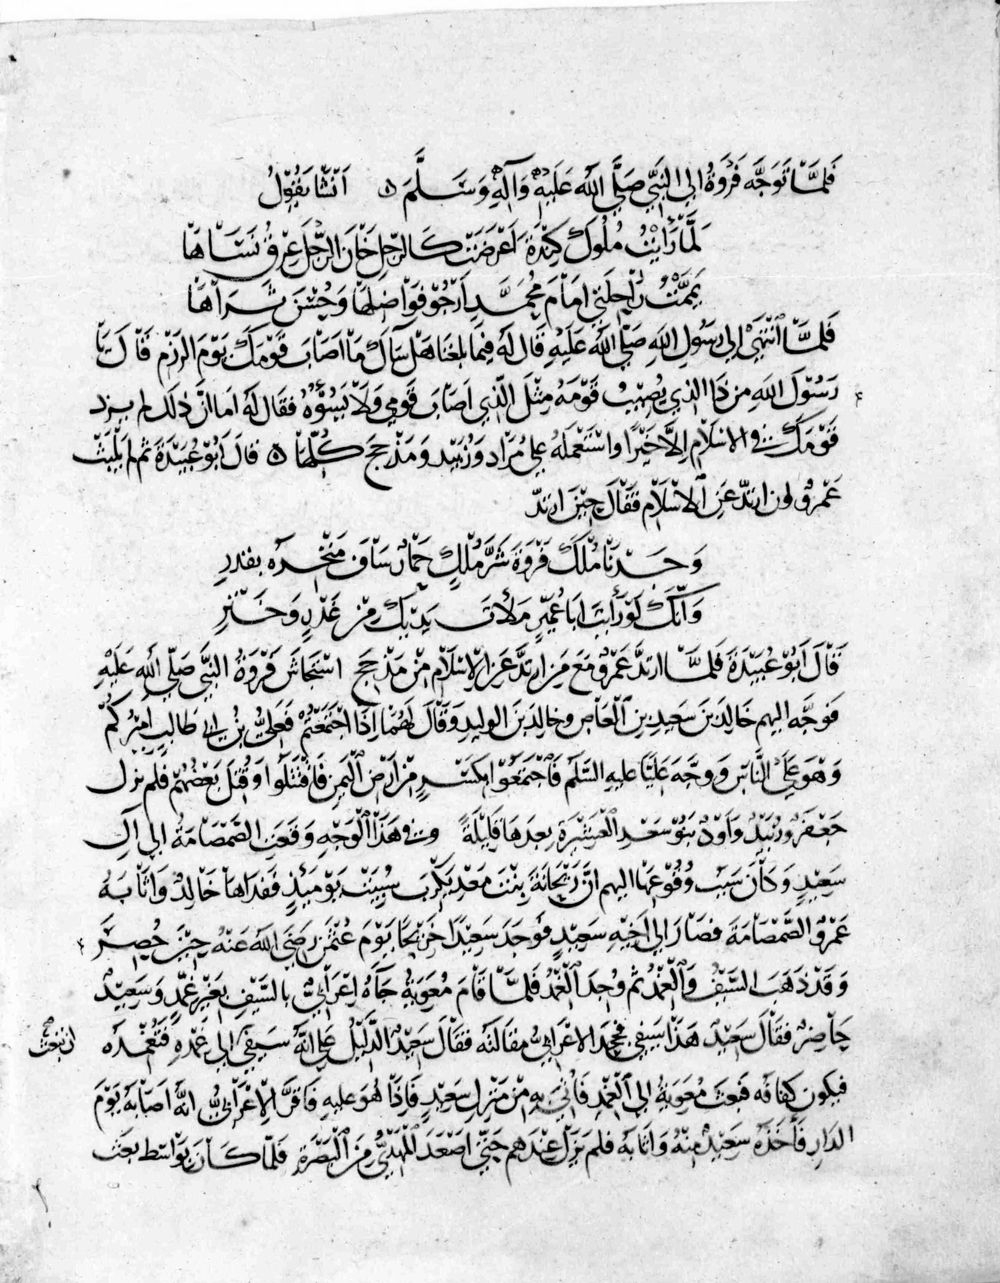 فَلَمَّا تَوَجَّه فَرْوَةُ الى النَّبِيِّ صَلَّى اللهُ عَلَيْهِ وَآلِهِ وَسَلَّمَ ه اَنْشَا يَقُوْلُ
لَمَّا رَأَيْتُ مُلُوكَ كِنْدَةَ اَعْرَضَتْ كَالرِّجْلِ خَانَ الرِّجْلَ عِرْقُ نَسَاهَا
يَمَّمْتُ رَاحِلَتِي اَمَامَ مُحَمَّدٍ اَرْجُوْ فَوَاضِلَهَا وَحُسْنَ ثَرَاهَا
فَلَمَّا انْتَهَى اِلى رَسُوْلِ اللهِ صَلَّى اللهُ عَلَيْهِ قَالَ لَهُ فِيْمَا بَلَغَنَا هَلْ سَآكَ مَا اَصَابَ قَوْمَكَ يَوْمَ الرَزْمِ قَالَ يَا
رَسُوْلَ اللهِ مَنْ ذَا الذِي يُصِيْبُ قَوْمَهُ مِثْلُ الَّذِي اَصَابَ قَوْمِي وَلَا يَسُؤْهُ فَقَال لَهُ اَمَا اِنَّ ذلكَ لم يزد
قَوْمَكَ في الاسْلَامِ اِلاَّ خَيْرًا وَاسْتَعْمَلَهُ عَلى مُرَاد وَزُبَيْد وَمَذْحِجَ كُلِّهَا ه قالَ اَبُوْ عُبَيْدَةَ ثم لم يَلْبَثْ
عَمْرٌو ان ارتَدَّ عَنِ الاسْلَامِ فَقَالَ حِيْنَ ارتَدَّ
وَجَدْنَا مُلْكَ فَرْوَةَ شَرَّ مُلْكٍ حِمَارٌ سَافَ مَنْخِرُهُ بقذرِ
وَاَنَّكَ لَوْ رَأَيْتَ اَبَا عُمَيْرٍ مَلَأْتَ يَدَيْكَ مِنْ غَدْرٍ وَخَتْرِ
قَالَ اَبُوْ عُبَيْدَةَ فَلَمَّا ارتَدَّ عَمْرٌو مَعَ مَن ارتَدَّ عَنِ الاِسْلَامِ مِنْ مَذْحِجَ اسْتَجَاشَ فَرْوَةُ النَّبِيَّ صَلَّى الله عَلَيْهِ
فَوَجَّهَ اليهم خَالِدَ بنَ سَعِيدِ بنِ الْعَاصِ وخالِدَ بنَ الوليدِ وَقَالَ لَهُمَا اِذَا اجْتَمَعْتُمْ فَعَلِيُّ بْنُ ابي طالبٍ اَمِيْرُكُمْ
وَهُوَ عَلَى النَّاسِ وَوَجَّهَ عَلِيًّا عليهِ السَّلَم فَاجْتَمَعُوْا بِكَسْرٍ مِنْ اَرضِ الْيَمَنِ فَاقْتَتَلُوا وَقُتِلَ بَعْضُهُمْ فلم تزل
جَعْفَرٌ وزُبَيْدٌ وَاَوْدُ بَنُوْ سَعْدِ الْعَشِيْرَةِ بعدهَا قَلِيْلَةً وفي هَذَا الْوَجْهِ وَقَعَتِ الصَّمْصَامَةُ الى آلِ
سَعِيْدٍ وَكَانَ سَبَبُ وُقُوْعِهَا اليهم اَنَّ رَيْحَانَةَ بِنْتَ مَعْدِيْكَرِبَ سُبِيَتْ يَوْمَئِذٍ فَفَدَاهَا خَالِدٌ وَاَثَابَهُ
عَمْرٌو الصَّمْصَامَةَ فصَارَ الى اَخِيْهِ سَعِيْدٍ فَوُجِدَ سَعِيْدٌ جَرِيْحًا يَوْمَ عُثْمَنَ رَضِيَ اللهُ عَنْهُ حِيْنَ حُصِرَ
وَقَدْ ذَهَبَ السَّيْفُ وَالْغِمْدُ ثم وُجِدَ الْغِمْدُ فَلَمَّا قَامَ مُعوِيَةُ جَآءَهُ اِعْرَابِيٌّ بِالسَّيْفِ بِغَيْرِ غِمْدٍ وَسَعِيْدٌ
حَاضِرٌ فقَالَ سَعِيْدٌ هَذَا سَيْفِي فجَحَدَ الاعْرَابِيُّ مَقَالَتَهُ فقَالَ سَعِيْدٌ الدَّلِيْلُ عَلى اَنَّهُ سَيْفِي ان تَبْعَثَ الى غِمْدِهِ فَتُغْمِدَهُ
فيكون كِفَافَه فَبَعَثَ مُعوِيَةُ الى الْغِمْدِ فَاُتِيَ بِهِ مِنْ مَنْزِلِ سَعِيْدٍ فَاِذَا هُوَ عليهِ فَاَقَرَّ الاِعْرَابِيُّ انَّهُ اَصَابَهُ يَوْمَ
الدَارِ فَاَخَذَهُ سَعِيْدٌ مِنْهُ وَاَثَابَهُ فلم يَزَلْ عِنْدَهم حَتَّى اَصْعَدَ الْمَهْدِيُّ مِنَ الْبَصْرَةِ فَلَمَّا كَانَ بِوَاسِط بَعَثَ